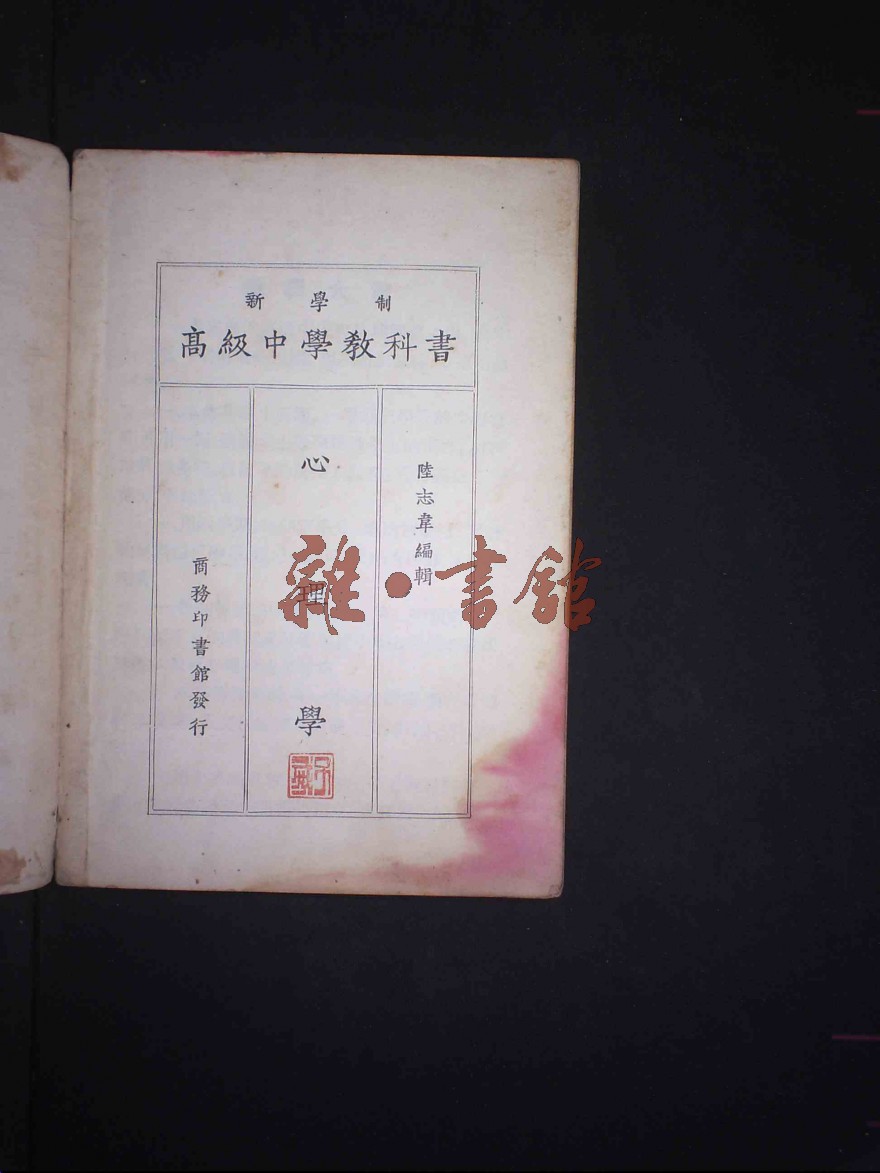 新學制
高級中學教科書
陸志韋編輯
心理學
商務印書館發行
雜•書館